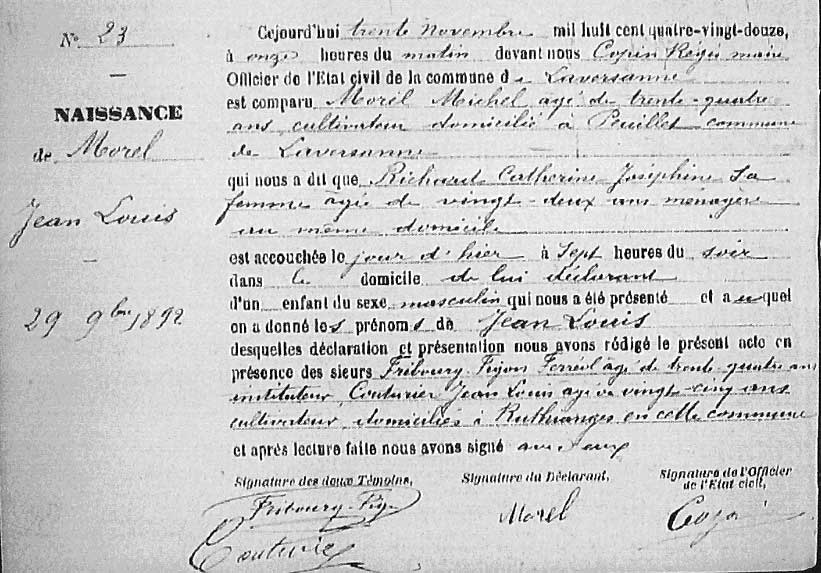 N° 23
NAISSANCE
de Morel
Jean Louis
29 9bre 1892
Cejourd'hui trente novembre mil huit cent quatre-vingt-douze,
à onze heures du matin devant nous Copin Régis maire
Officier de l'Etat civil de la commune de Laversanne
est comparu Morel Michel agé de trente-quatre
ans cultivateur domicilié à Peuillet commune
de Laversanne
qui nous a dit que Richard Catherine Joséphine sa
femme âgée de vingt-deux ans ménagère
au même domicile
est accouchée le jour d'hier à Sept heures du soir
dans le domicile de lui déclarant
d'un enfant du sexe masculin qui nous a été présenté et auquel
on a donné les prénoms de Jean Louis
desquelles déclaration et présentation nous avons rédigé le présent acte en
présence des sieurs Fribourg Ferréol âgé de trente-quatre ans
instituteur Couturier Jean Louis âgé de vingt-cinq ans
cultivateur domiciliés à Ruthianges en cette commune
et après lecture faite nous avons signé avec eux
Signature des deux Témoins,
Signature du Déclarant,
Signature de l'Officier
de l'Etat civil,
Fribourg
Morel
Couturier